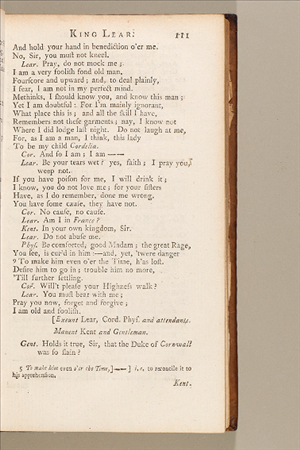 KING LEAR. 111
And hold your hand in benediction o'er me.
No, Sir, you must not kneel.
Lear. Pray, do not mock me;
I am a very foolish fond old man,
Fourscore and upward; and, to deal plainly,
I fear, I am not in my perfect mind.
Methinks, I should know you, and know this man;
Yet I am doubtful: For I'm mainly ignorant,
What place this is; and all the skill I have,
Remembers not these garments; nay, I know not
Where I did lodge last night. Do not laugh at me,
For, as I am a man, I think, this lady
To be my child Cordelia.
Cor. And so I am; I am ——
Lear. Be your tears wet? yes, faith; I pray you,
weep not.
If you have poison for me, I will drink it;
I know, you do not love me; for your sisters
Have, as I do remember, done me wrong.
You have some cause, they have not.
Cor. No cause, no cause.
Lear. Am I in France?
Kent. In your own kingdom, Sir.
Lear. Do not abuse me.
Phys. Be comforted, good Madam; the great Rage,
You see, is cur'd in him:—and, yet, 'twere danger
5 To make him even o'er the Time, h'as lost.
Desire him to go in; trouble him no more,
'Till further settling.
Cor. Will't please your Highness walk?
Lear. You must bear with me;
Pray you now, forget and forgive;
I am old and foolish.
[Exeunt Lear, Cord. Phys. and attendants.
Manent Kent and Gentleman.
Gent. Holds it true, Sir, that the Duke of Cornwall
was so slain?
5 To make him even o'er the Time,]—— ] i.e. to reconcile it to
his apprehension.
Kent.